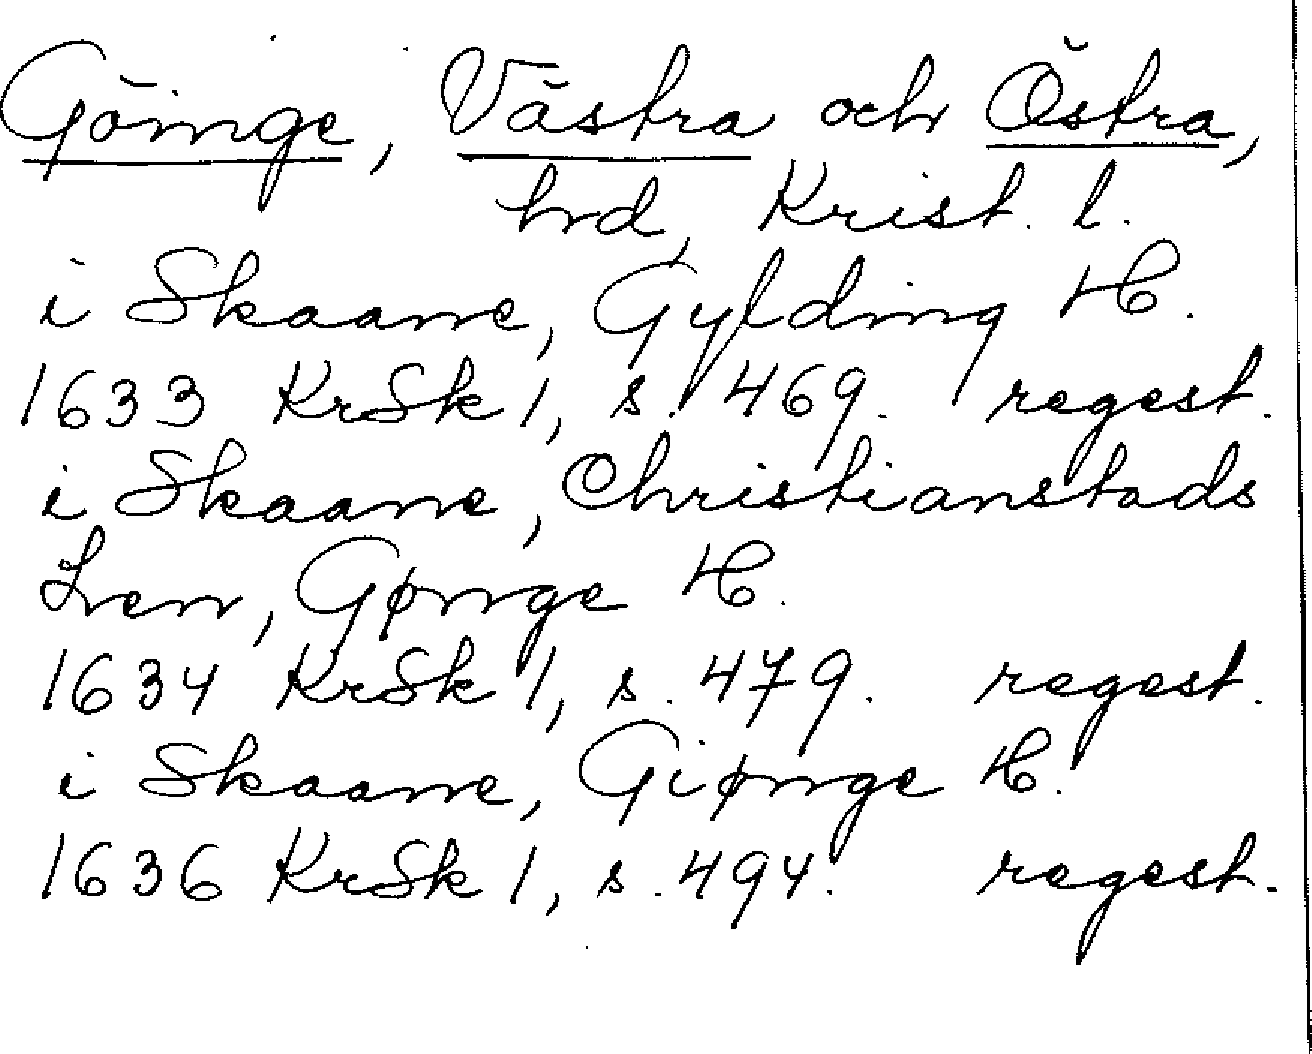 Göinge, Västra och Östra,
hrd, Krist. l.
i Skaane, Gylding H.
1633 KrSk 1, s. 469. regest.
i Skaane, Christianstads
Len, Gønge H.
1634 KrSk 1, s. 479. regest.
i Skaane, Giønge H.
1636 KrSk 1, s. 494. regest.